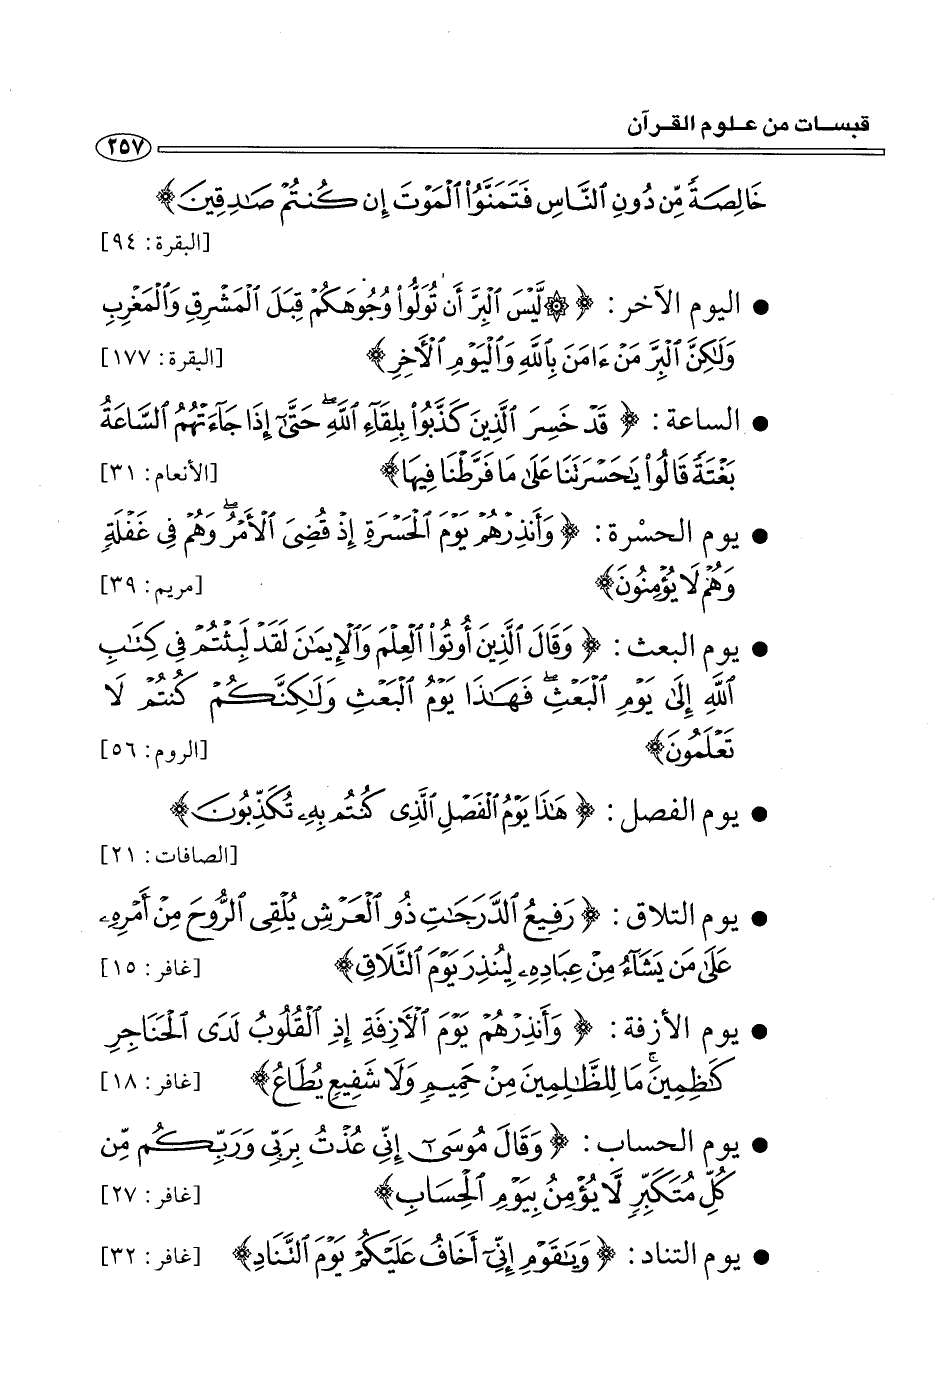 قبسات من علوم القرآن
٢٥٧
خَالِصَةً مِّن دُونِ ٱلنَّاسِ فَتَمَنَّوُا۟ ٱلْمَوْتَ إِن كُنتُمْ صَـٰدِقِينَ﴾
[البقرة: ٩٤]
● اليوم الآخر: ﴿ ۞ لَّيْسَ ٱلْبِرَّ أَن تُوَلُّوا۟ وُجُوهَكُمْ قِبَلَ ٱلْمَشْرِقِ وَٱلْمَغْرِبِ
وَلَـٰكِنَّ ٱلْبِرَّ مَنْ ءَامَنَ بِٱللَّهِ وَٱلْيَوْمِ ٱلْـَٔاخِرِ﴾ [البقرة: ١٧٧]
● الساعة: ﴿ قَدْ خَسِرَ ٱلَّذِينَ كَذَّبُوا۟ بِلِقَآءِ ٱللَّهِ ۖ حَتَّىٰٓ إِذَا جَآءَتْهُمُ ٱلسَّاعَةُ
بَغْتَةً قَالُوا۟ يَـٰحَسْرَتَنَا عَلَىٰ مَا فَرَّطْنَا فِيهَا﴾ [الأنعام: ٣١]
● يوم الحسْرة: ﴿ وَأَنذِرْهُمْ يَوْمَ ٱلْحَسْرَةِ إِذْ قُضِىَ ٱلْأَمْرُ ۖ وَهُمْ فِى غَفْلَةٍ
وَهُمْ لَا يُؤْمِنُونَ﴾ [مريم: ٣٩]
● يوم البعث: ﴿ وَقَالَ ٱلَّذِينَ أُوتُوا۟ ٱلْعِلْمَ وَٱلْإِيمَـٰنَ لَقَدْ لَبِثْتُمْ فِى كِتَـٰبِ
ٱللَّهِ إِلَىٰ يَوْمِ ٱلْبَعْثِ ۖ فَهَـٰذَا يَوْمُ ٱلْبَعْثِ وَلَـٰكِنَّكُمْ كُنتُمْ لَا
تَعْلَمُونَ﴾ [الروم: ٥٦]
● يوم الفصل: ﴿ هَـٰذَا يَوْمُ ٱلْفَصْلِ ٱلَّذِى كُنتُم بِهِۦ تُكَذِّبُونَ﴾
[الصافات: ٢١]
● يوم التلاق: ﴿ رَفِيعُ ٱلدَّرَجَـٰتِ ذُو ٱلْعَرْشِ يُلْقِى ٱلرُّوحَ مِنْ أَمْرِهِۦ
عَلَىٰ مَن يَشَآءُ مِنْ عِبَادِهِۦ لِيُنذِرَ يَوْمَ ٱلتَّلَاقِ﴾ [غافر: ١٥]
● يوم الأزفة: ﴿ وَأَنذِرْهُمْ يَوْمَ ٱلْـَٔازِفَةِ إِذِ ٱلْقُلُوبُ لَدَى ٱلْحَنَاجِرِ
كَـٰظِمِينَ ۚ مَا لِلظَّـٰلِمِينَ مِنْ حَمِيمٍ وَلَا شَفِيعٍ يُطَاعُ﴾ [غافر: ١٨]
● يوم الحساب: ﴿ وَقَالَ مُوسَىٰٓ إِنِّى عُذْتُ بِرَبِّى وَرَبِّكُم مِّن
كُلِّ مُتَكَبِّرٍ لَّا يُؤْمِنُ بِيَوْمِ ٱلْحِسَابِ﴾ [غافر: ٢٧]
● يوم التناد: ﴿ وَيَـٰقَوْمِ إِنِّىٓ أَخَافُ عَلَيْكُمْ يَوْمَ ٱلتَّنَادِ﴾ [غافر: ٣٢]